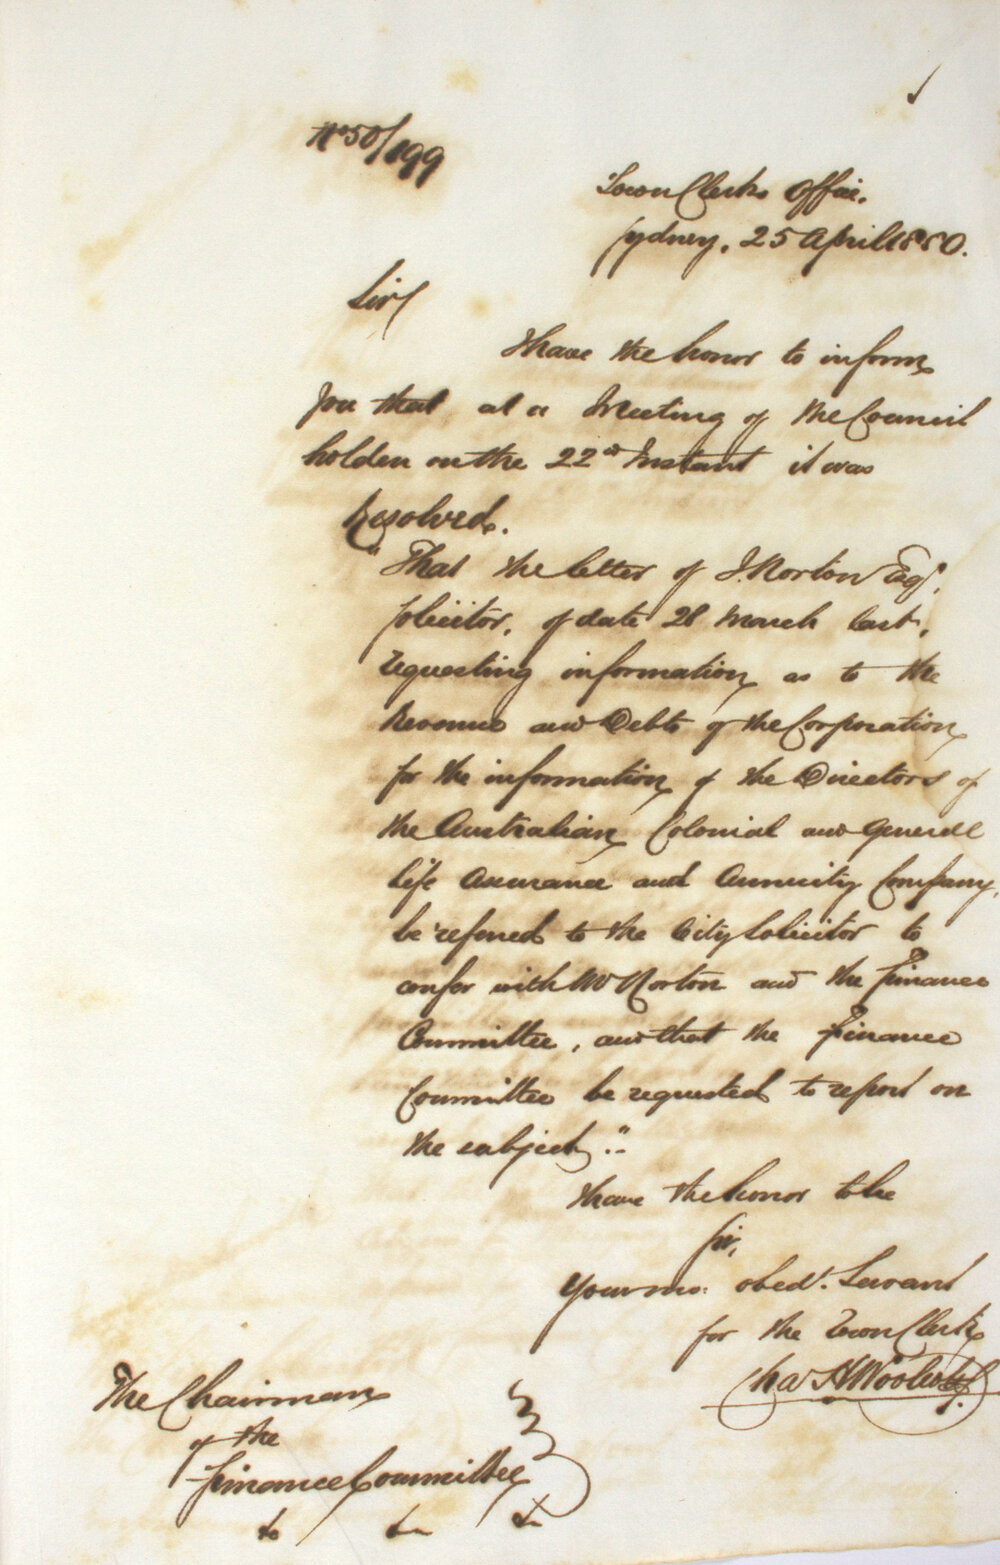 No 50/199
Town Clerks Office.
Sydney, 25 April 1850.
Sir
I have the honor to inform
you that at a Meeting of the Council
holden on the 22nd Instant it was
Resolved.
"That the letter of J. Norton Esqr.
Solicitor, of date 28 March last,
requesting information as to the
Revenue and Debts of the Corporation
for the information of the Directors of
the Australian Colonial and General
Life Assurance and Annuity Company,
be referred to the City Solicitor to
confer with Mr Norton and the Finance
Committee, and that the Finance
Committee be requested to report on
the subject."
I have the honor to be
Sir,
Your mo: obedt. Servant
for the Town Clerk
Chas H Woolcott
The Chairman
of the
Finance Committee